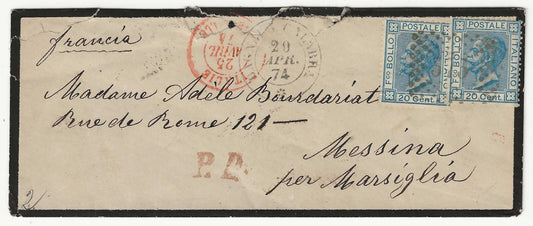 francia
20
APR.
74
25
AVRIL
74
Fco BOLLO POSTALE ITALIANO
20 Cent.
Fco BOLLO POSTALE ITALIANO
20 Cent.
Madame Adele Bourdariat
Rue de Rome 121 —
Messina
per Marsiglia
P.D.
2/